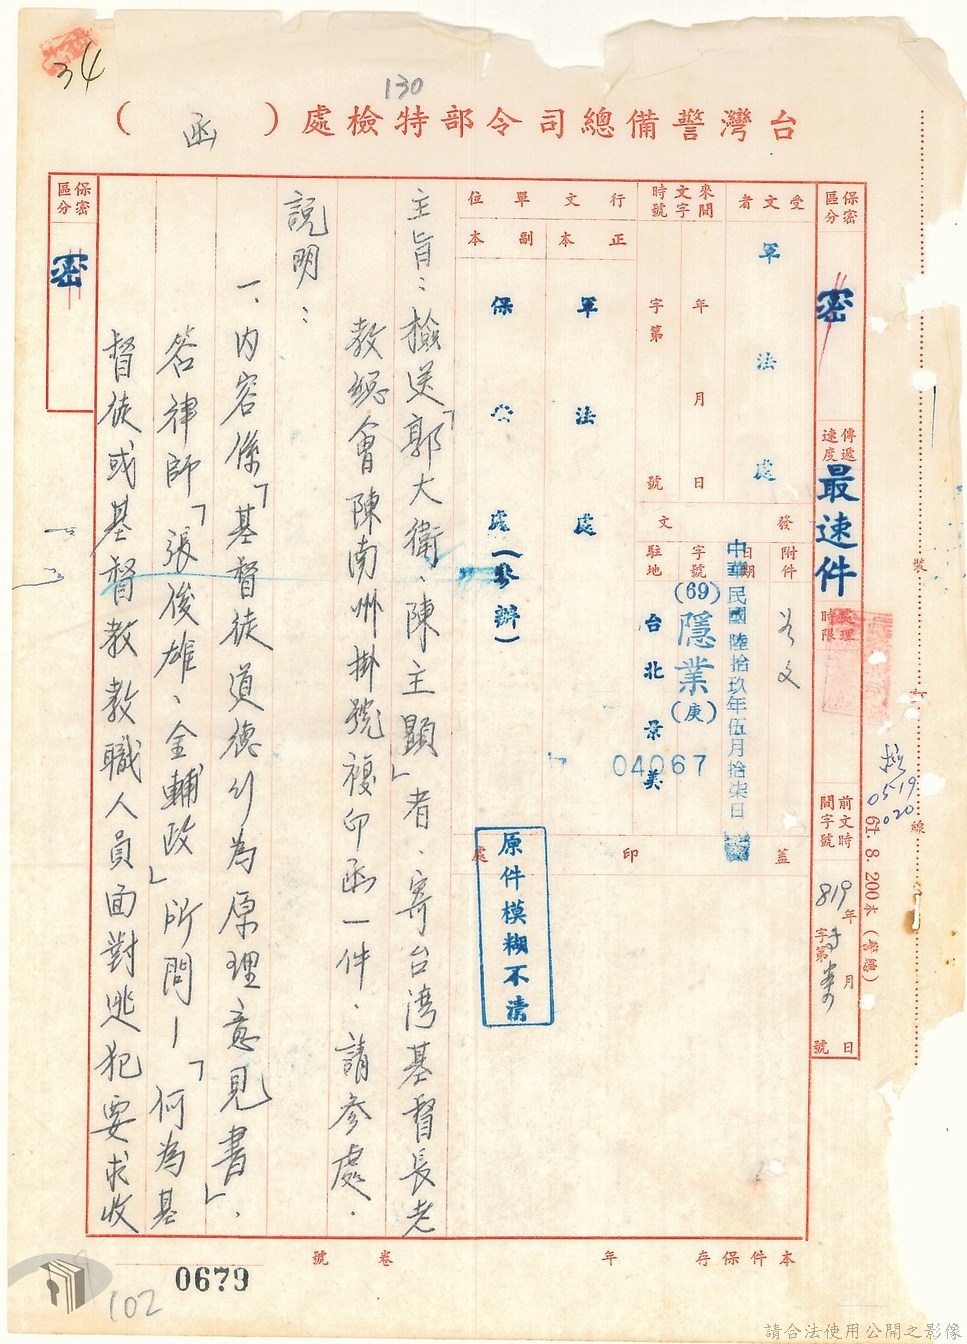 34
130
台灣警備總司令部特檢處（函）
保密區分
密
傳遞速度
最速件
處理時限
前文時間字號
819年
字第
月
日
號
受文者
軍法處
來文時間字號
年
月
日
字第
號
行文單位
正本
軍法處
副本
保安處（參辦）
發文
附件
如文
日期
中華民國陸拾玖年伍月拾柒日
字號
(69)隱業(庚)
04067
駐地
台北景美
蓋印處
原件模糊不清
主旨：檢送「郭大衛、陳主顯」者、寄台湾基督長老
教總會陳南州掛號複印函一件．請參處．
說明：
一、內容係「基督徒道德行為原理意見書」、
答律師「張俊雄、金輔政」所問—「何為基
督徒或基督教教職人員面對逃犯要求收
保密區分
密
裝
訂
線
0519
020
61. 8. 200本
本件保存
年
卷
號
0679
102
請合法使用公開之影像